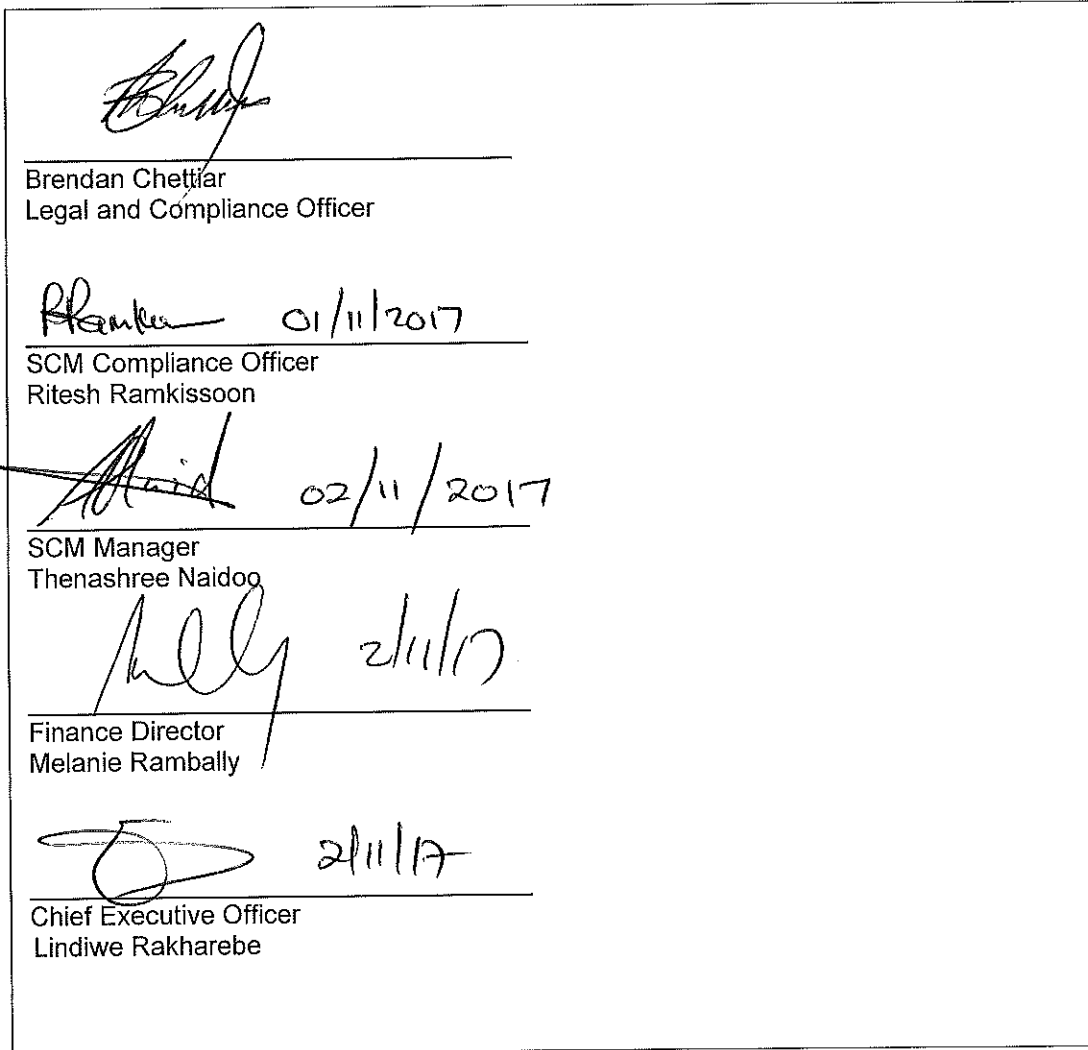 Brendan Chettiar
Legal and Compliance Officer
01/11/2017
SCM Compliance Officer
Ritesh Ramkissoon
02/11/2017
SCM Manager
Thenashree Naidoo
2/11/17
Finance Director
Melanie Rambally
2/11/17
Chief Executive Officer
Lindiwe Rakharebe